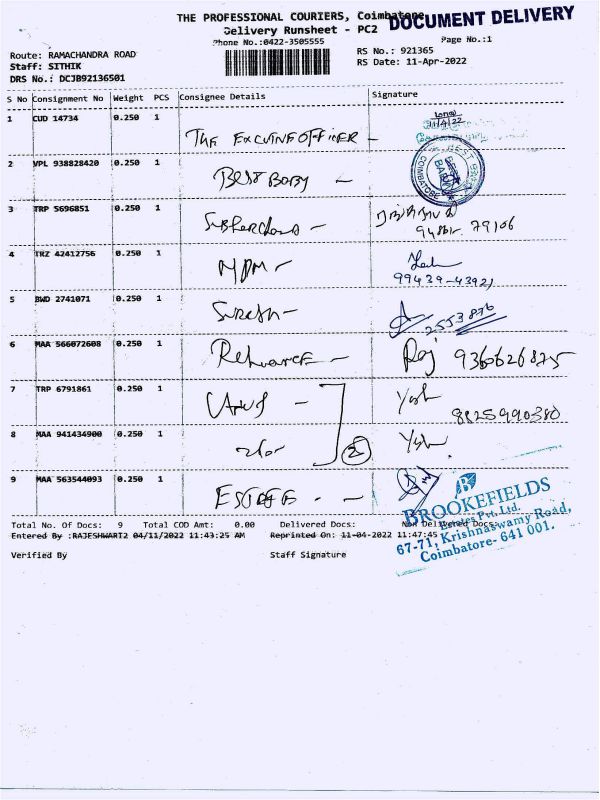 THE PROFESSIONAL COURIERS, Coimbatore
DOCUMENT DELIVERY
Delivery Runsheet - PC2
Phone No.:0422-3505555
Page No.:1
Route: RAMACHANDRA ROAD
Staff: SITHIK
DRS No.: DCJB92136501
RS No.: 921365
RS Date: 11-Apr-2022
S No Consignment No Weight PCS Consignee Details Signature
1 CUD 14734 0.250 1
THE
11/4/22
2 VPL 938828420 0.250 1
BEST BABY
BEST BABY COIMBATORE
3 TRP 5696851 0.250 1
79106
4 TRZ 42412756 0.250 1
MDM
99439-43921
5 BWD 2741071 0.250 1
Suresh
2553876
6 MAA 566072608 0.250 1
Reliance
Raj 9360626825
7 TRP 6791861 0.250 1
Yash
8825990380
8 MAA 941434900 0.250 1
2
Yash
9 MAA 563544093 0.250 1
BROOKEFIELDS
Estates Pvt. Ltd.
67-71, Krishnaswamy Road,
Coimbatore- 641 001.
Total No. Of Docs: 9 Total COD Amt: 0.00 Delivered Docs: Non Delivered Docs:
Entered By :RAJESHWARI2 04/11/2022 11:43:25 AM Reprinted On: 11-04-2022 11:47:45
Verified By Staff Signature